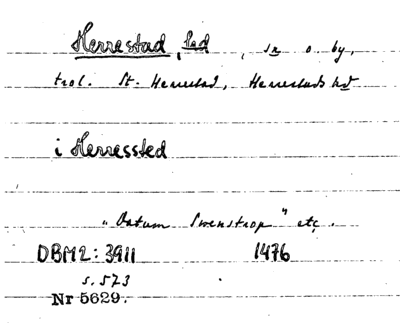 Herrestad, hd, sn o. by,
trol. St. Herrestad, Herrestads hd
i Herressted
"Datum Swenstrop" etc.
DBM2: 3911 1476
s. 573
Nr 5629.